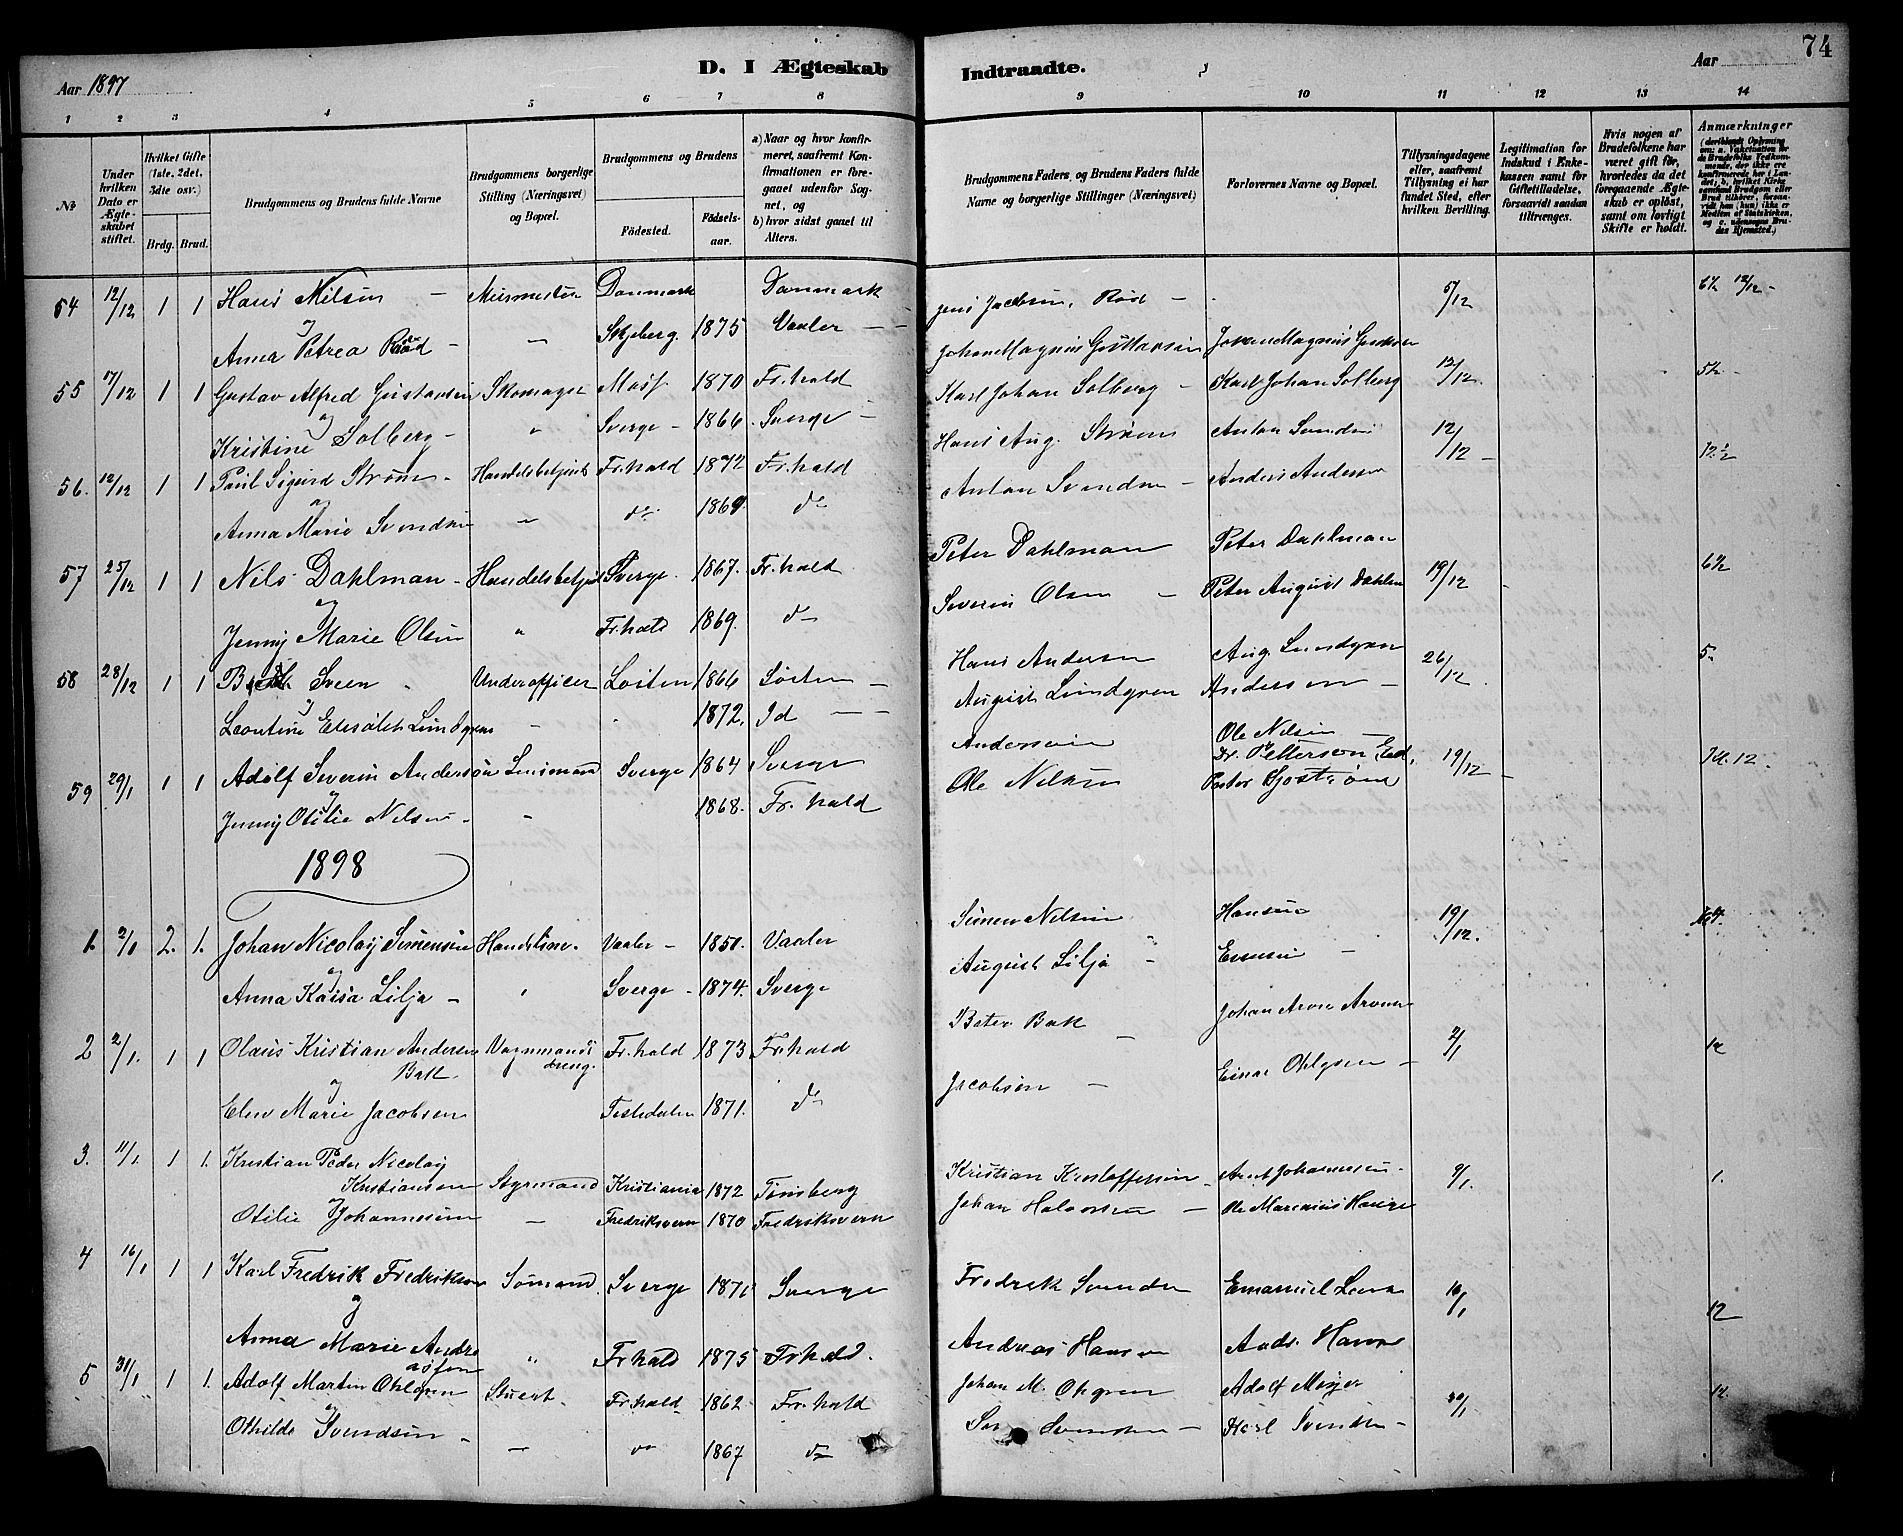 74
Aar 1897
D. I Ægteskab
Indtraadte.
Aar
1 2 3 4 5 6 7 8 9 10 11 12 13 14
No
Under hvilken Dato er Ægteskabet stiftet.
Hvilket Gifte (1ste, 2det, 3die osv.)
Brdg. Brud.
Brudgommens og Brudens fulde Navne
Brudgommens borgerlige Stilling (Næringsvei) og Bopæl.
Brudgommens og Brudens
Fødested.
Fødsels-aar.
a) Naar og hvor konfirmeret, saafremt Konfirmationen er foregaaet udenfor Sognet, og
b) hvor sidst gaaet til Alters.
Brudgommens Faders og Brudens Faders fulde Navne og borgerlige Stillinger (Næringsvei)
Forlovernes Navne og Bopæl.
Tillysningsdagene eller, saafremt Tillysning ei har fundet Sted, efter hvilken Bevilling.
Legitimation for Indskud i Enkekassen samt for Giftetilladelse, forsaavidt saadan tiltrænges.
Hvis nogen af Brudefolkene har været gift før, hvorledes da det foregaaende Ægteskab er opløst, samt om lovligt Skifte er holdt.
Anmærkninger
54 12/12 1 1 Hans Nilsen - Danmark Danmark Jens Jacobsen, Rød - 5/12
og
Anna Petrea Rød - Skjeberg. 1875 Vaaler Johan Magnus Gustavsen
55 17/12 1 1 Gustav Alfred Gustavsen Skomager Moss 1870 Fr.hald Karl Johan Solberg - Karl Johan Solberg 12/12.
og
Kristine Solberg - Sverge - 1866 Sverge Hans Aug. Strøm Anton Svendsen 12/12
56. 12/12 1 1 Paul Sigurd Strøm - Handelsbetjent Fr.hald 1872 Fr.hald Anton Svendsen - Anders Andersen
og
Anna Marie Svendsen do 1869. do
57 25/12 1 1 Nils Dahlman - Handelsbetjent Sverge. 1867. Fr.hald Peter Dahlman Peter Dahlman 19/12
og
Jenny Marie Olsen Fr.hald 1869. do Severin Olsen - Peter August Dahlen
58 28/12 1 1 Sveen Underofficer Løiten 1866 Løiten Hans Andersen Aug. Lundgren 26/12 5
og
Leontine Elisabeth Lundgren 1872. Id August Lundgren Andersen
59 29/1 1 1 Adolf Severin Anderson Lensmand Sverge 1864 Sverge Ole Nilsen 19/12
og
Jenny Otilie Nelsen - 1868. Fr.hald Ole Nelsen
1898
1. 2/1 2. 1. Johan Nicolay Simensen Vaaler - 1850. Vaaler Simen Nelsen Hansen 19/12.
og
Anna Kaisa Lilja - Sverge - 1874. Sverge August Lilja
2 2/1. 1 1 Olaus Kristian Andersen Bak. Vognmandsdreng. Fr.hald 1873 Fr.hald Bak Johan Arne 2/1
og
Elen Marie Jacobsen Tistedalen 1871. do Jacobsen - Einar Ohlgsen -
3. 11/1. 1 1. Kristian Peder Nicolay Kristiansen Styrmand Kristiania 1872 Tønsberg Kristian Kristoffersen Arnt Johannesen 9/1. 1.
og
Otilie Johannesen - Fredriksvern 1870 Fredriksvern Johan Halvorsen -
4 16/1 1 1 Karl Fredrik Fredriksen Sømand. Sverge 1871 Sverge Fredrik Svendsen Emanuel 16/1 12
og
Anna Marie Andreassen Fr.hald 1875 Fr.hald. Andreas Hansen
5 31/1 1 1. Adolf Martin Ohlgren Stuert. Fr.hald 1862 Fr.hald Johan M. Ohgren Adolf Meyer 30/1
og
Othilde Svendsen - do 1867 do Svendsen - Karl Svendsen -